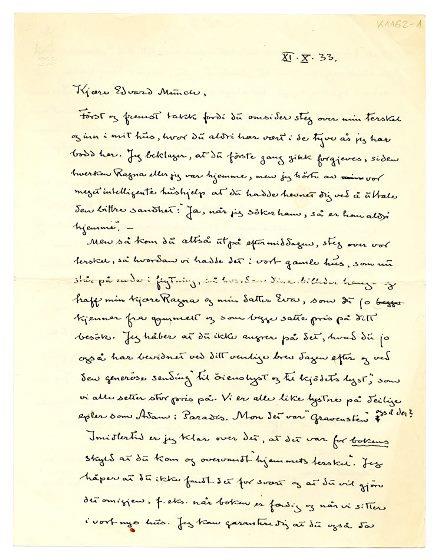 K1162-1
XI. X. 33.
Kjære Edvard Munch.
Först og fremst takk fordi du omsider steg over min terskel
og inn i mit hus, hvor du aldri har vært i de tyve år jeg har
bodd her. Jeg beklager, at du förste gang gikk forgjeves, siden
hverken Ragna eller jeg var hjemme, men jeg hörte av vor
meget intelligente hushjelp at du hadde hevnet dig ved å uttale
den bittre sandhet: "Ja, når jeg söker ham, så er han aldri
hjemme". —
Men så kom du altså ut på eftermiddagen, steg over vor
terskel, så hvordan vi hadde det i vort gamle hus, som nu
står på ende i flytning, så hvordan dine billeder hang - og
traff min kjære Ragna og min datter Eva, som du jo
kjenner fra gammelt og som begge satte pris på ditt
besök. Jeg håber at du ikke angrer på det, hvad du jo
også har bevidnet ved ditt venlige brev dagen efter og ved
den generöse sending "til öienslyst og til kjödets lyst", som
vi alle setter stor pris på. Vi er alle like lystne på deilige
epler som Adam i Paradis. Mon det var "Gravensten" også der?
Imidlertid er jeg klar over det, at det var for bokens
skyld at du kom og overvandt "hjemmets terskel". Jeg
håper at du ikke fandt det for svært og at du vil gjöre
det omigjen, f. eks. når boken er færdig og når vi sitter
i vort nye hus. Jeg kan garantere dig at du også da